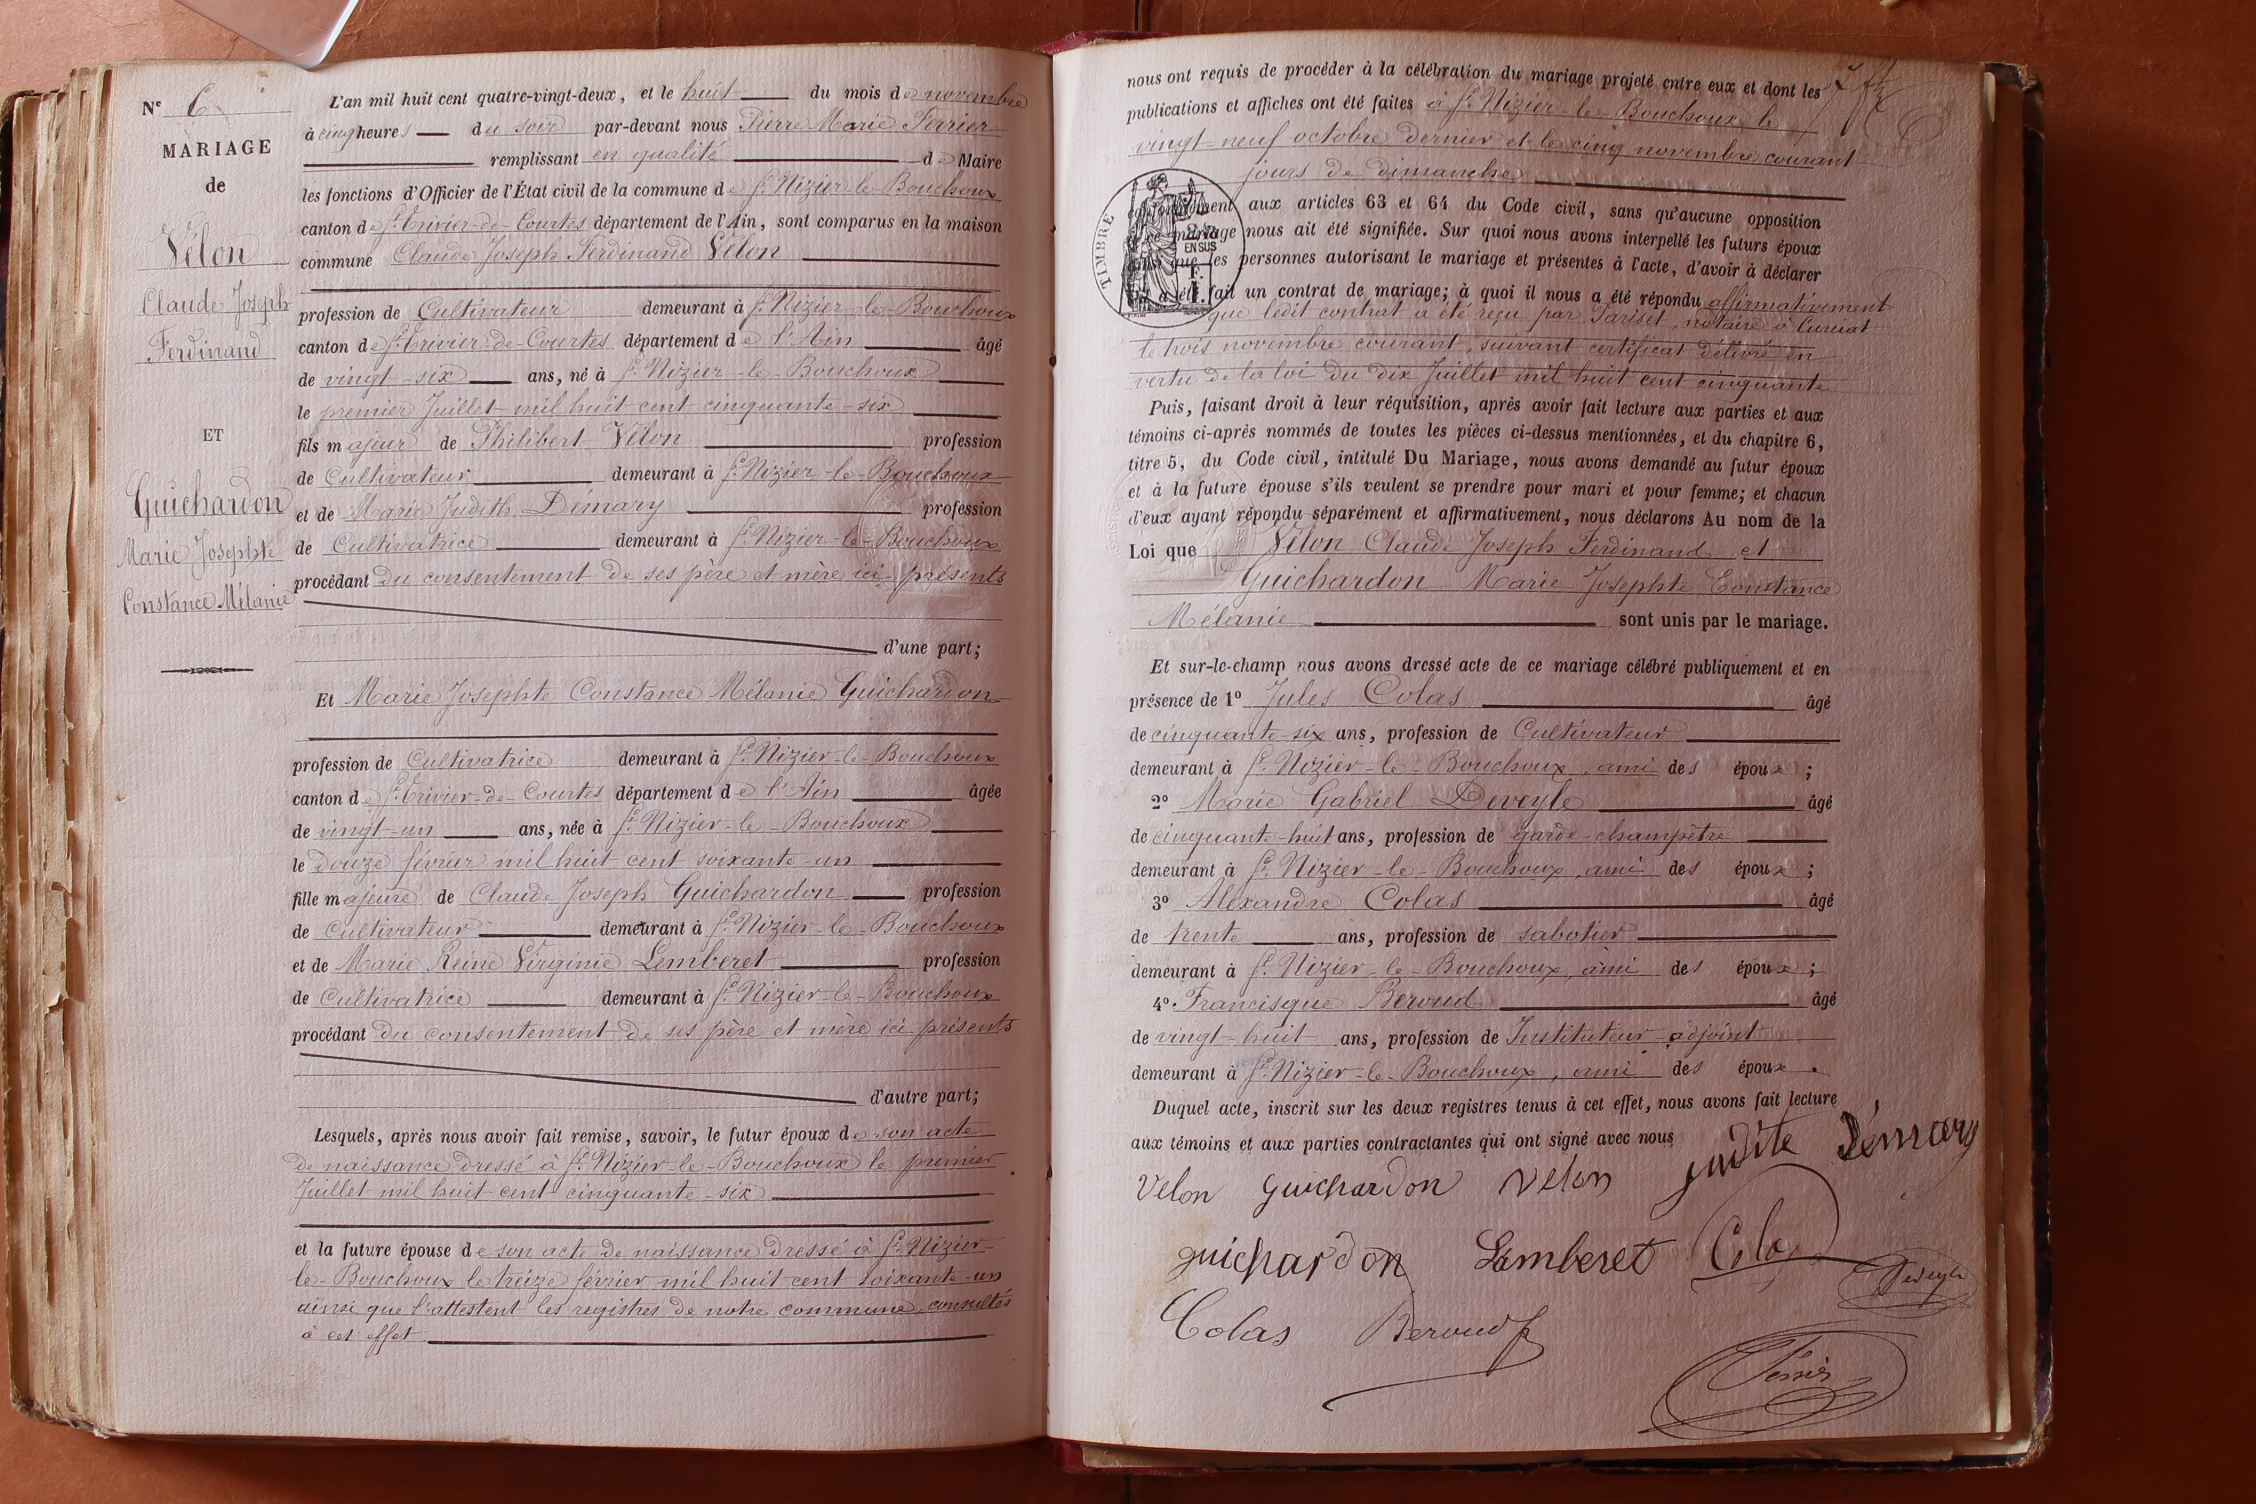 Nº 6
MARIAGE
de
Vélon
Claude Joseph
Ferdinand
ET
Guichardon
Marie Josephte
Constance Mélanie
L'an mil huit cent quatre-vingt-deux, et le huit du mois de novembre
à cinq heures du soir par-devant nous Pierre Marie Perrier
remplissant en qualité de Maire
les fonctions d'Officier de l'État civil de la commune de St Nizier-le-Bouchoux
canton de St Trivier-de-Courtes département de l'Ain, sont comparus en la maison
commune Claude Joseph Ferdinand Vélon
profession de Cultivateur demeurant à St Nizier-le-Bouchoux
canton de St Trivier-de-Courtes département de l'Ain âgé
de vingt-six ans, né à St Nizier-le-Bouchoux
le premier Juillet mil huit cent cinquante-six
fils majeur de Philibert Vélon profession
de Cultivateur demeurant à St Nizier-le-Bouchoux
et de Marie Judith Démary profession
de Cultivatrice demeurant à St Nizier-le-Bouchoux
procédant du consentement de ses père et mère ici présents
d'une part;
Et Marie Josephte Constance Mélanie Guichardon
profession de Cultivatrice demeurant à St Nizier-le-Bouchoux
canton de St Trivier-de-Courtes département de l'Ain âgée
de vingt-un ans, née à St Nizier-le-Bouchoux
le douze février mil huit cent soixante-un
fille majeure de Claude Joseph Guichardon profession
de Cultivateur demeurant à St Nizier-le-Bouchoux
et de Marie Reine Virginie Lemberet profession
de Cultivatrice demeurant à St Nizier-le-Bouchoux
procédant du consentement de ses père et mère ici présents
d'autre part;
Lesquels, après nous avoir fait remise, savoir, le futur époux de son acte
de naissance dressé à St Nizier-le-Bouchoux le premier
Juillet mil huit cent cinquante-six
et la future épouse de son acte de naissance dressé à St Nizier-
le-Bouchoux le treize février mil huit cent soixante-un
ainsi que l'attestent les registres de notre commune consultés
à cet effet
nous ont requis de procéder à la célébration du mariage projeté entre eux et dont les
publications et affiches ont été faites à St Nizier-le-Bouchoux le
vingt-neuf octobre dernier et le cinq novembre courant
jours de dimanche
TIMBRE
EN SUS
conformément aux articles 63 et 64 du Code civil, sans qu'aucune opposition
mariage nous ait été signifiée. Sur quoi nous avons interpellé les futurs époux
que les personnes autorisant le mariage et présentes à l'acte, d'avoir à déclarer
été fait un contrat de mariage; à quoi il nous a été répondu affirmativement
que ledit contrat a été reçu par Pariset, notaire à Curciat
le trois novembre courant, suivant certificat délivré en
vertu de la loi du dix Juillet mil huit cent cinquante
Puis, faisant droit à leur réquisition, après avoir fait lecture aux parties et aux
témoins ci-après nommés de toutes les pièces ci-dessus mentionnées, et du chapitre 6,
titre 5, du Code civil, intitulé Du Mariage, nous avons demandé au futur époux
et à la future épouse s'ils veulent se prendre pour mari et pour femme; et chacun
d'eux ayant répondu séparément et affirmativement, nous déclarons Au nom de la
Loi que Vélon Claude Joseph Ferdinand et
Guichardon Marie Josephte Constance
Mélanie sont unis par le mariage.
Et sur-le-champ nous avons dressé acte de ce mariage célébré publiquement et en
présence de 1º Jules Colas âgé
de cinquante-six ans, profession de Cultivateur
demeurant à St Nizier-le-Bouchoux, ami des époux;
2º Marie Gabriel Deveyle âgé
de cinquante-huit ans, profession de garde-champêtre
demeurant à St Nizier-le-Bouchoux, ami des époux;
3º Alexandre Colas âgé
de trente ans, profession de sabotier
demeurant à St Nizier-le-Bouchoux, ami des époux;
4º Francisque Beroud âgé
de vingt-huit ans, profession de Instituteur-adjoint
demeurant à St Nizier-le-Bouchoux, ami des époux.
Duquel acte, inscrit sur les deux registres tenus à cet effet, nous avons fait lecture
aux témoins et aux parties contractantes qui ont signé avec nous
judite Démary
Velon guichardon Vélon
guichardon Lemberet Colas
Deveyle
Colas Beroud
Perrier